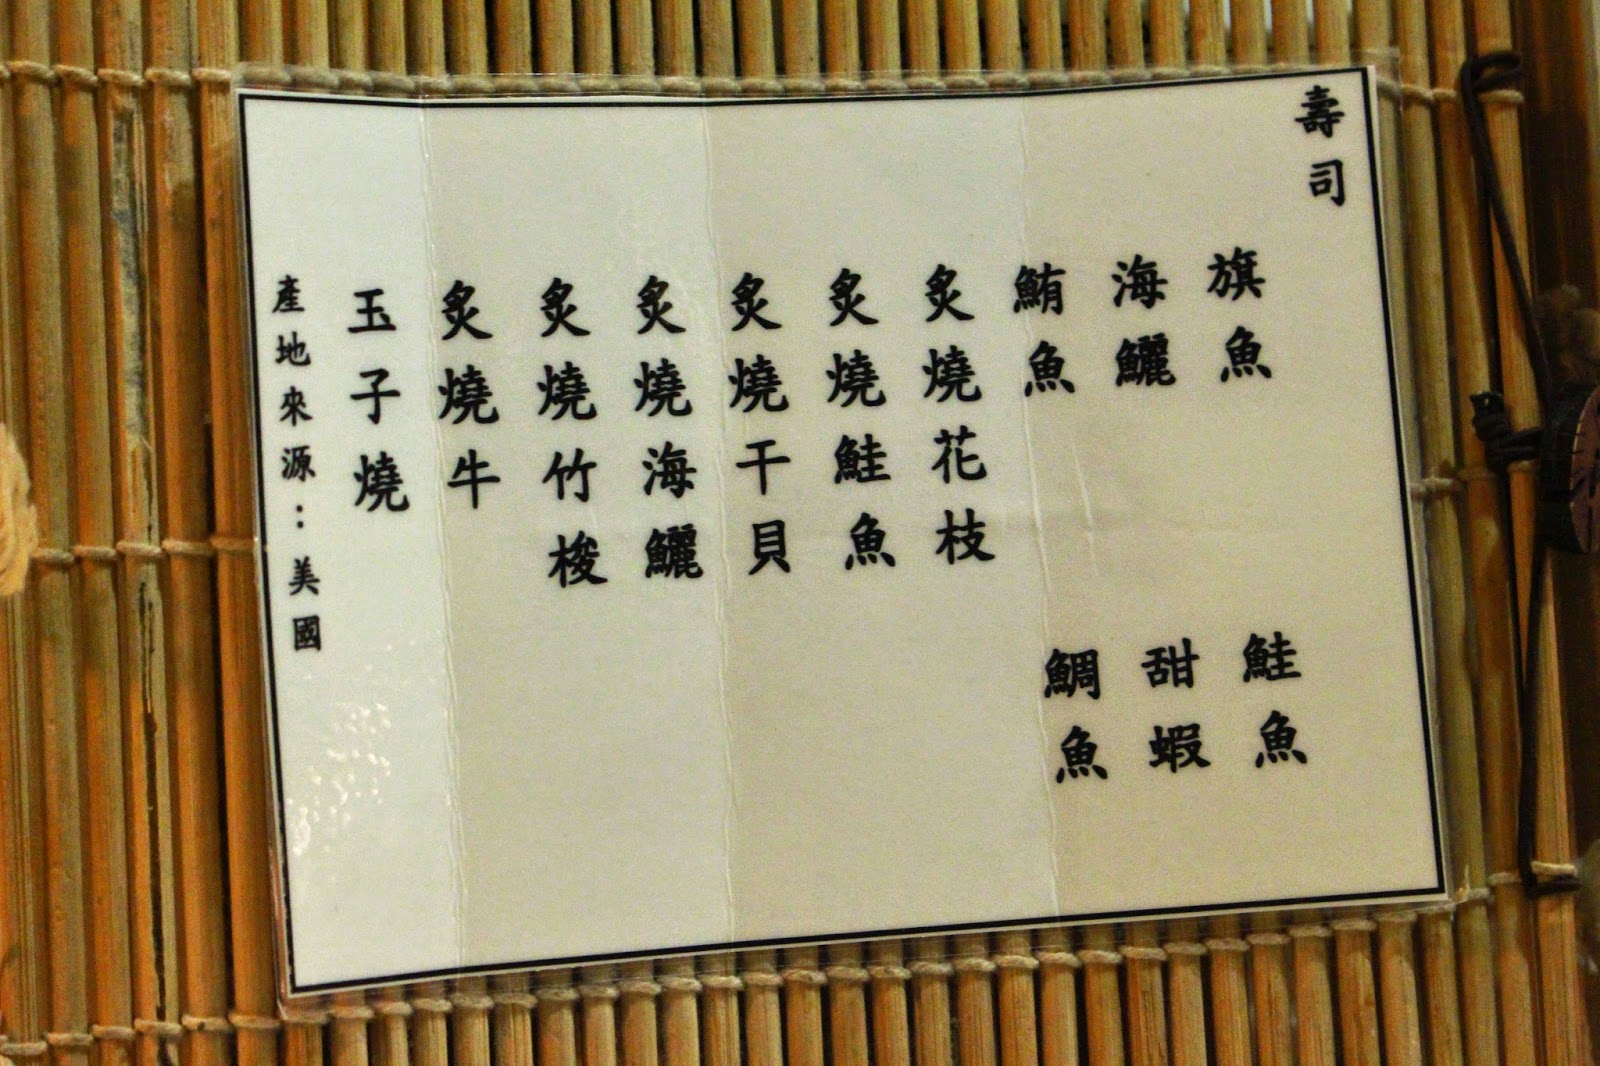 壽司
旗魚
鮭魚
海鱺
甜蝦
鮪魚
鯛魚
炙燒花枝
炙燒鮭魚
炙燒干貝
炙燒海鱺
炙燒竹梭
炙燒牛
玉子燒
產地來源:美國